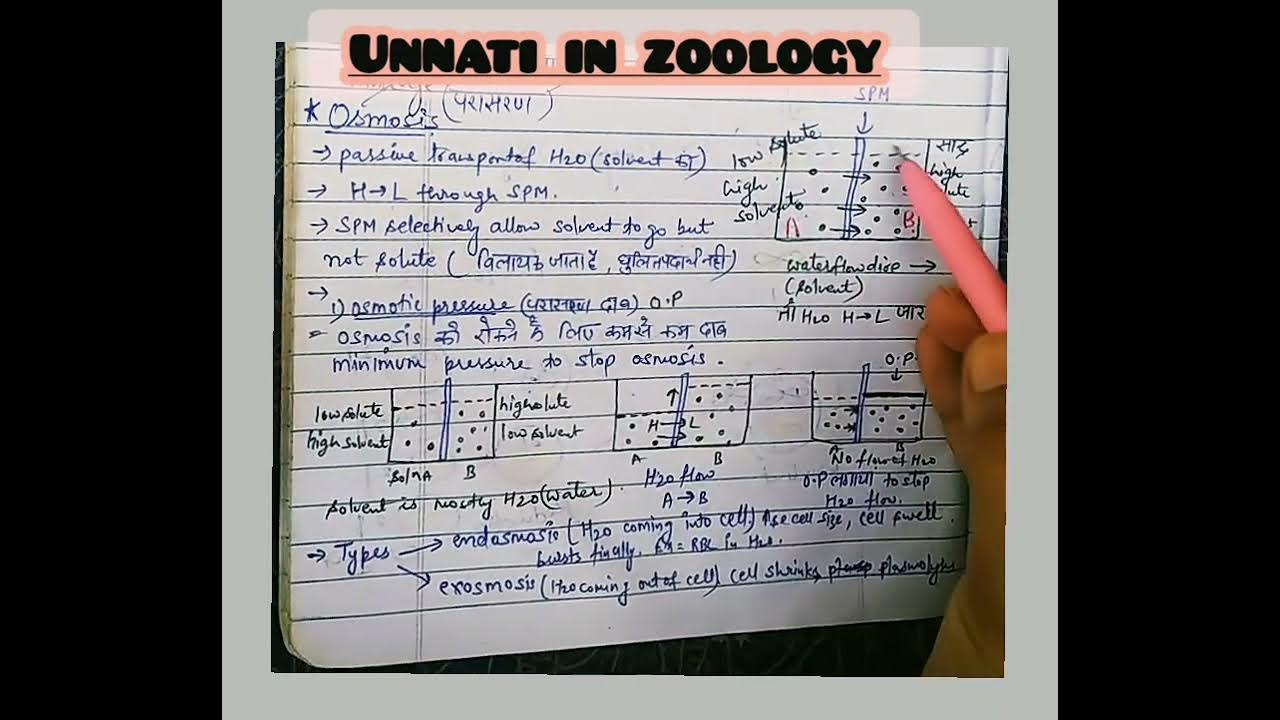 UNNATI IN ZOOLOGY
(परासरण)
* Osmosis
→ passive transport of H2O (solvent का)
→ H→L through SPM.
→ SPM selectively allow solvent to go but
not solute ( विलायक जाता है, घुलित पदार्थ नहीं)
→
1) osmotic pressure (परासरण दाब) O.P
= osmosis को रोकने के लिए कमसे कम दाब
minimum pressure to stop osmosis.
SPM
low solute
high
solvent
A
B
सांद्र
high
waterflow dirn →
(solvent)
H2O H→L
low solute
high solvent
high solute
low solvent
soln A
B
H→L
A
B
H2O flow
A→B
O.P.
A
B
No flow of H2O
O.P लगाया to stop
H2O flow.
solvent is mostly H2O (water).
→ Types → endosmosis (H2O coming into cell) cell size, cell swell.
bursts finally. Ex = RBC in H2O.
→ exosmosis (H2O coming out of cell) cell shrinks,